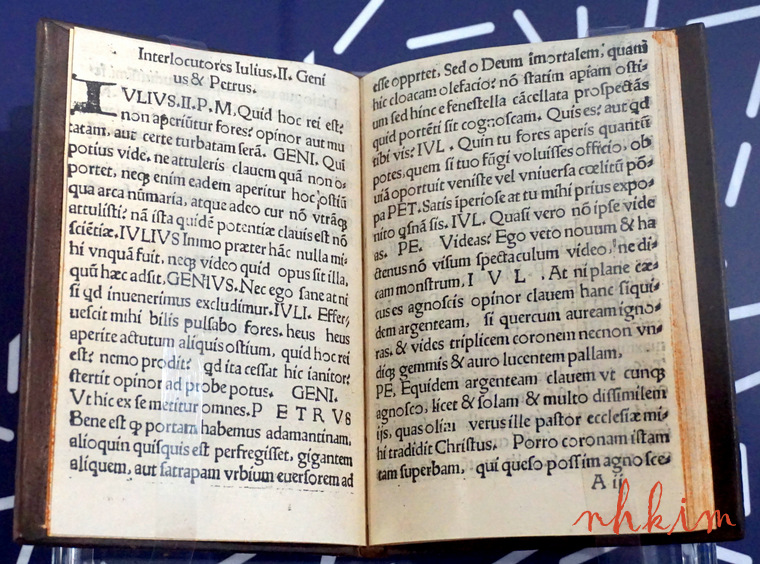 Interlocutores Iulius.II. Geni
us & Petrus.
IVLIVS.II.P.M. Quid hoc rei est?
non aperiūtur fores? opinor aut mu
tatam, aut certe turbatam serā. GENI. Qui
potius vide, ne attuleris clauem quā non o-
portet, neqꝫ enim eadem aperitur hoc ostiū
qua arca nūmaria, atque adeo cur nō vtrāqꝫ
attulisti? nā ista quidē potentiæ clauis est nō
sciētiæ. IVLIVS Immo præter hāc nulla mi-
hi vnquā fuit, neqꝫ video quid opus sit illa,
quū hæc adsit, GENIVS. Nec ego sane at ni
si qd inuenerimus excludimur. IVLI. Efferr
uescit mihi bilis pulsabo fores. heus heus
aperite actutum aliquis ostium, quid hoc rei
est? nemo prodit? qd ita cessat hic ianitor?
stertit opinor ad probe potus. GENI.
Vt hic ex se metitur omnes. P E T R V S
Bene est ꝙ portam habemus adamantinam,
alioquin quisquis est perfregisset, gigantem
aliquem, aut satrapam vrbium euersorem ad
esse opprtet. Sed o Deum imortalem, quam
hic cloacam olefacio? nō statim apiam osti-
um sed hinc e fenestella cācellata prospectās
quid portēti sit cognoscam. Quis es? aut qd
tibi vis? IVL. Quin tu fores aperis quantū
potes, quem si tuo fūgi voluisses officio, ob
uiā oportuit veniste vel vniuersa cœlitū pō-
pa PET. Satis iperiose at tu mihi prius expo-
nito qsnā sis. IVL. Quasi vero nō ipse vide
as. PE. Videas? Ego veto nouum & ha
ctenus nō visum spectaculum video, ne di-
cam monstrum, I V L. At ni plane cæ-
cus es agnoscis opinor clauem hanc siqui-
dem argenteam, si quercum auream igno-
ras. & vides triplicem coronem necnon vn-
diqꝫ gemmis & auro lucentem pallam,
PE. Equidem argenteam clauem vt cunqꝫ
agnosco, licet & solam & multo dissimilem
ijs, quas olim verus ille pastor ecclesiæ mi-
hi tradidit Christus. Porro coronam istam
tam superbam, qui queso possim agnosce-
A ij
nhkim